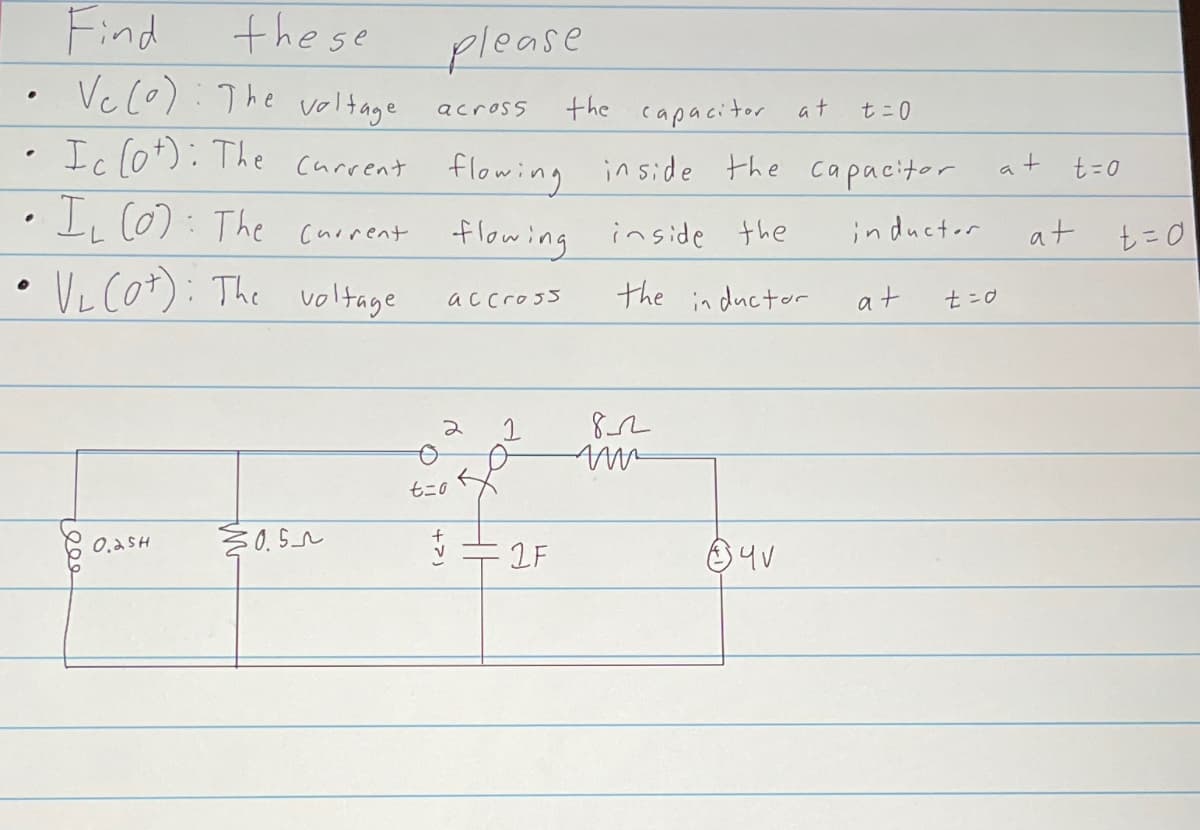 Find these please
• Vc(0): The voltage across the capacitor at t=0
• Ic(0⁺): The current flowing inside the capacitor at t=0
• I_L(0): The current flowing inside the inductor at t=0
• V_L(0⁺): The voltage accross the inductor at t=0
2 1 8Ω
t=0
0.25H 0.5Ω + V - 1F + - 4V